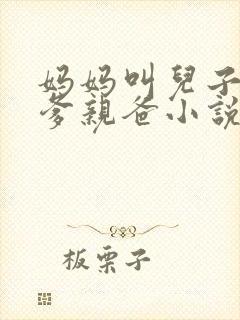 妈妈叫兒子
爹親爸小說
板栗子